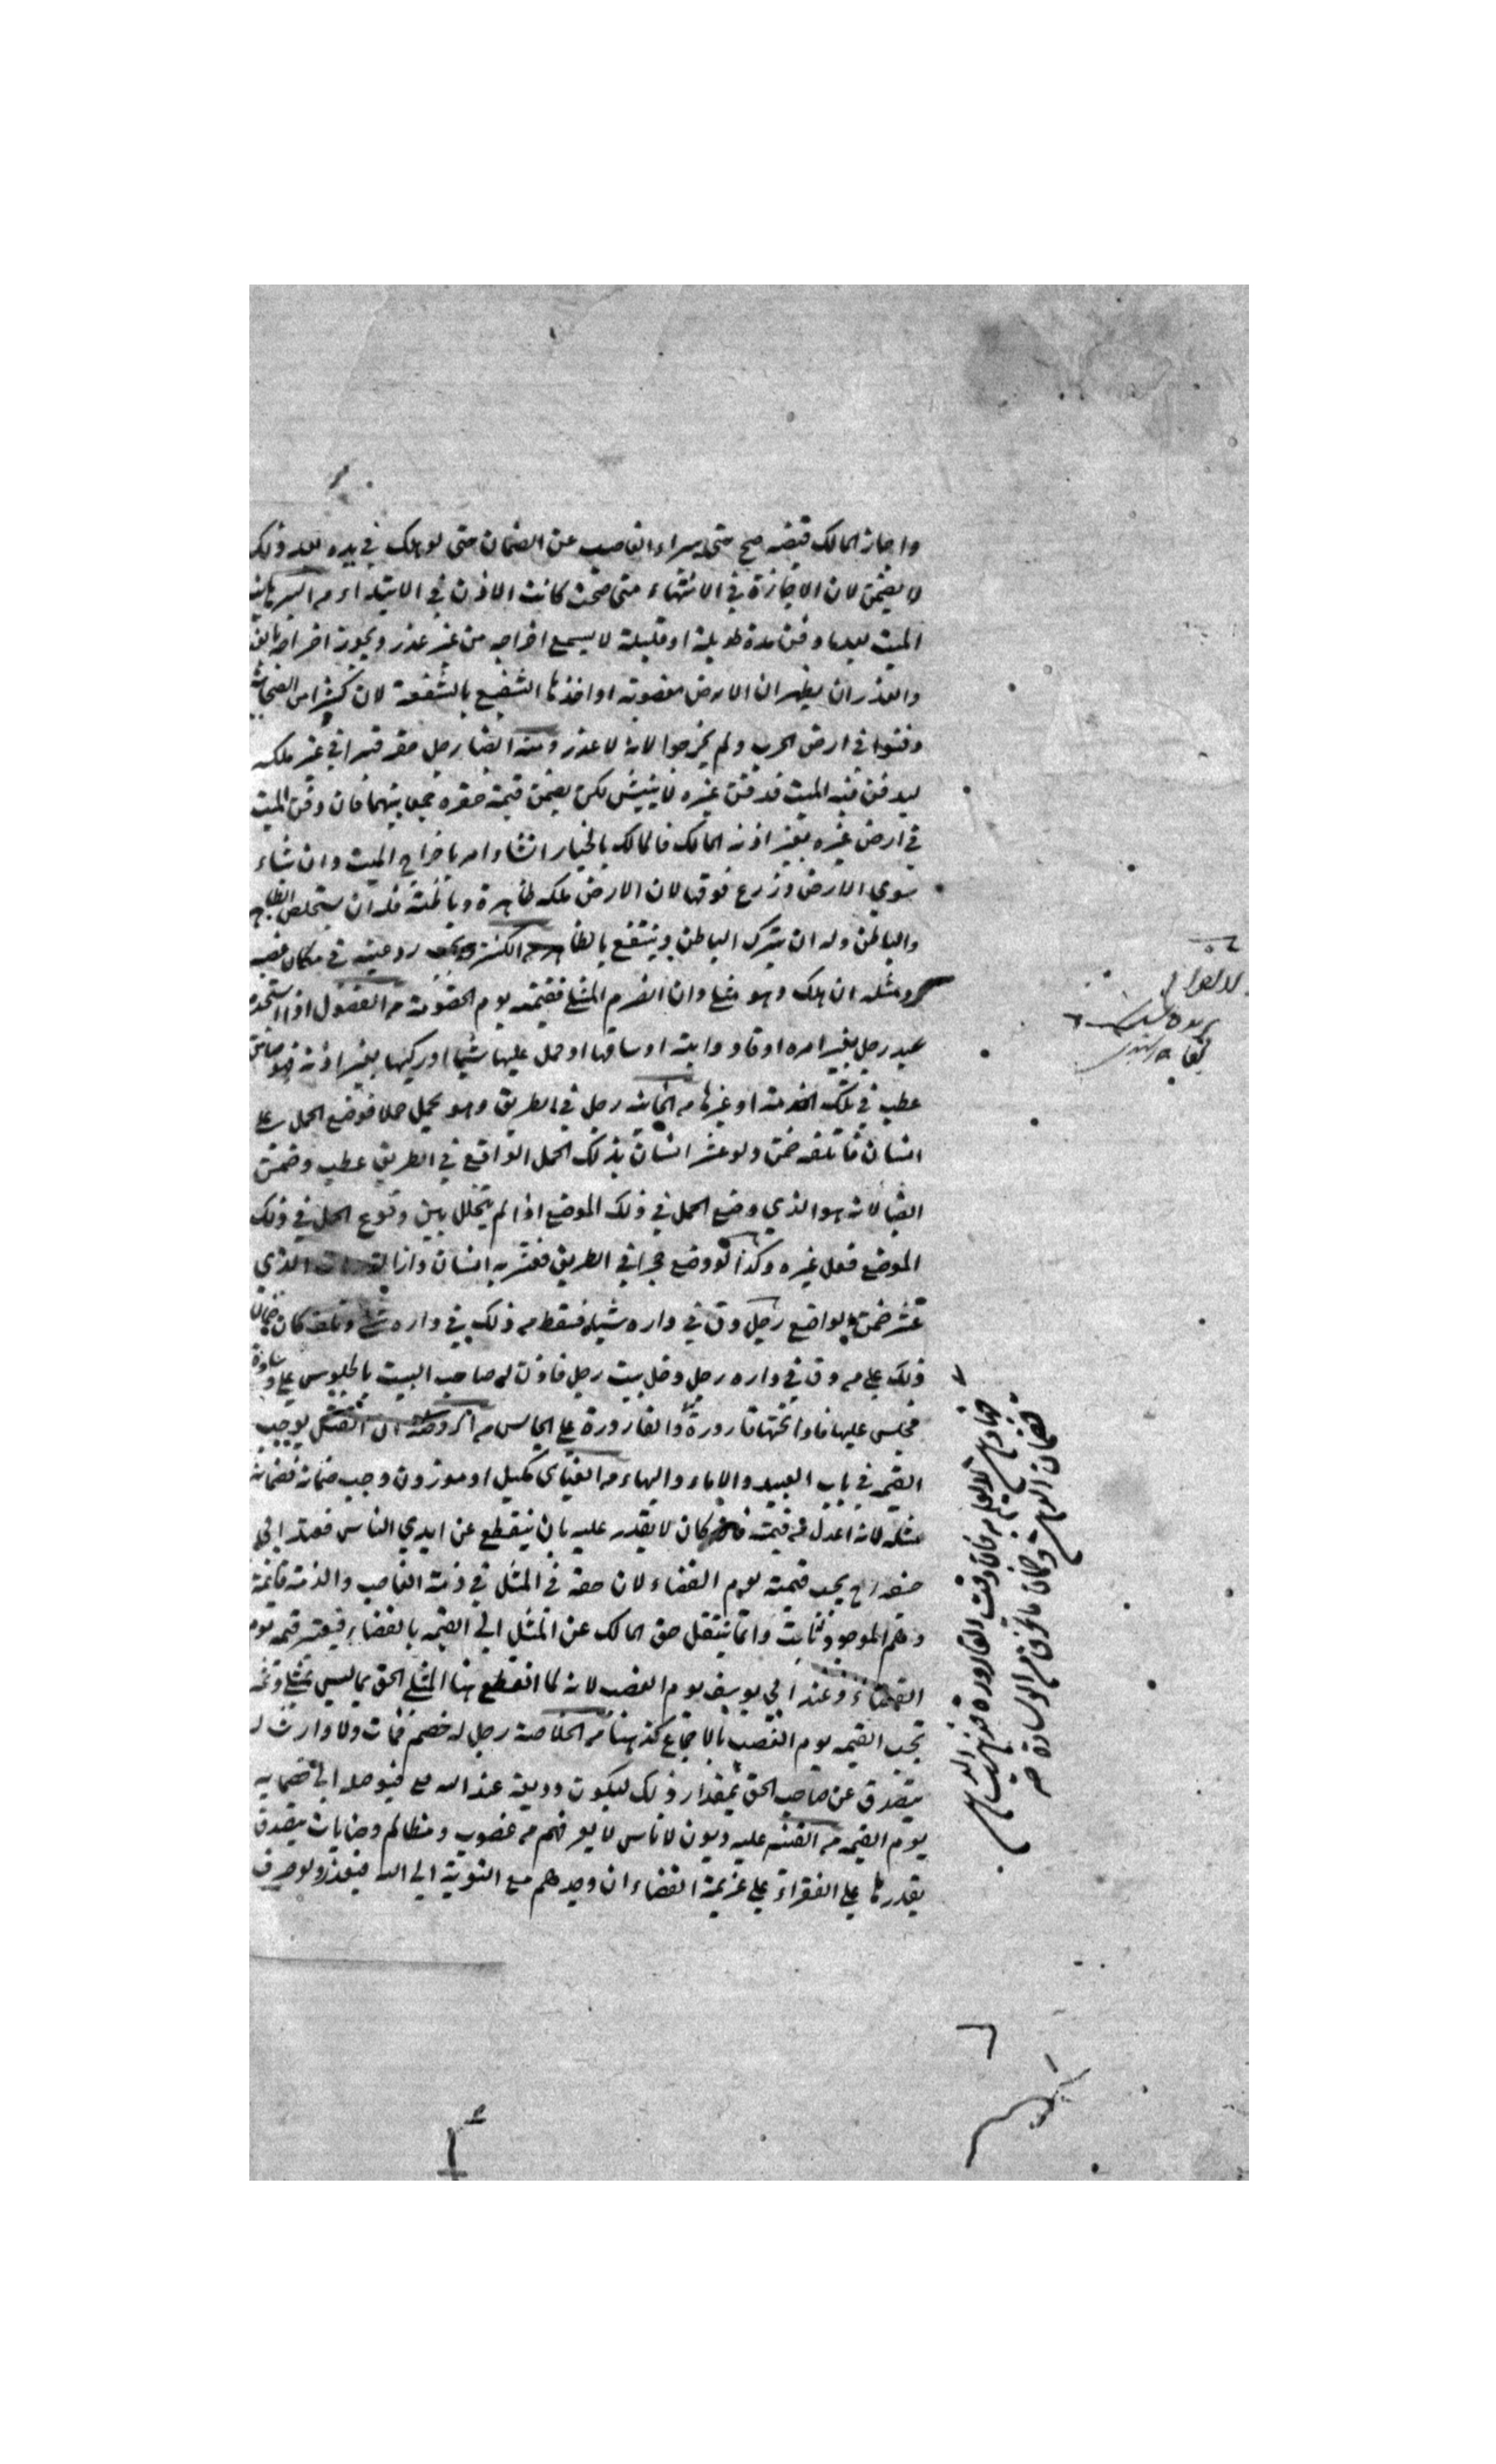 واجاز المالك قبضه صح حتى يبراء الغاصب عن الضمان حتى لو هلك في يده بعد ذلك
لا يضمن لان الاجازة في الانتهاء متى صحت كانت الاذن في الابتداء من
الميت بعد ما دفن مدة طويلة او قليلة لا يسع اخراجه من غير عذر ويجوز اخراجه
والعذر ان يظهر ان الارض مغصوبة او اخذها الشفيع بالشفعة لان كثيرا من الصحابة
دفنوا في ارض الحرب ولم يخرجوا لانه لا عذر ومنه ايضا رجل حفر قبرا في غير ملكه
ليدفن فيه الميت فدفن غيره لا ينبش لكن يضمن قيمة حفره جمعا بينهما فان دفن الميت
في ارض غيره بغير اذنه المالك فالمالك بالخيار ان شاء امر باخراج الميت وان شاء
سوي الارض وزرع فوقها لان الارض ملكه ظاهره وباطنه فله ان يستخلص الظاهر
والباطن وله ان يترك الباطن وينتفع بالظاهر من الكنز ويجب رد عينه في مكان غصبه
ومثله ان هلك وهو مثلي وان انصرم المثلي فقيمته يوم الخصومة من الفصول اذا استخدم
عبد رجل بغير امره او قاد دابته او ساقها او حمل عليها شيئا او ركبها بغير اذنه فهو ضامن
عطب في تلك الخدمة او غيرها من الخانيه رجل في الطريق وهو يحمل حملا فوضع الحمل على
انسان فاتلفه ضمن ولو عثر انسان بذلك الحمل الواقع في الطريق عطب وضمن
ايضا لانه هو الذي وضع الحمل في ذلك الموضع اذا لم يتخلل بين وقوع الحمل في ذلك
الموضع فعل غيره وكذا لو وضع حجرا في الطريق فعثر به انسان الذي
عثر ضمن الواضع رجل دق في داره شيئا فسقط من ذلك في داره وتلف كان ضمان
ذلك على من دق في داره رجل دخل بيت رجل فاذن له صاحب البيت بالجلوس على وسادة
فجلس عليها فاذا تحتها قارورة والقارورة على الجالس من
القيمه في باب العبيد والاماء والبهاء من العتابي كميل او موزون وجب ضمانه فضمانه
مثله لانه اعدل من قيمته كان لا يقدر عليه بان ينقطع عن ايدي الناس فعند ابي
حنفه رح يجب قيمته يوم القضاء لان حقه في المثل في ذمة الغاصب والذمة قائمة
وانما ينتقل حق المالك عن المثل الي القيمه بالقضاء فيعتبر قيمه يوم
القضاء وعند ابي يوسف يوم الغصب لانه لما انقطع هنا المثلي الحق بما ليس بمثلي
تجب القيمه يوم الغصب بالاجماع كذا هنا من الخلاصة رجل له خصم فمات ولا وارث له
يتصدق عن صاحب الحق بمقدار ذلك ليكون وديعة عند الله مع فيوصله الى خصمايه
يوم القيمه من القنيه عليه ديون لاناس لا يعرفهم من غصوب ومظالم وجنايات يتصدق
بقدرها على الفقراء على عزيمة القضاء ان وجدهم مع التوبة الي الله فيعذر ولو صرف